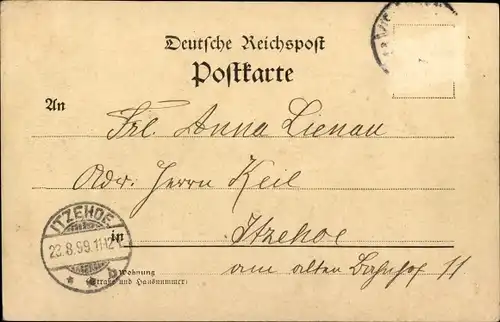 Deutsche Reichspost
Postkarte
An
Frl. Anna Lienau
Adr: Herrn Keil
in Itzehoe
am alten Bahnhof 11
Wohnung
(Straße und Hausnummer)
ITZEHOE
23.8.99.11-12